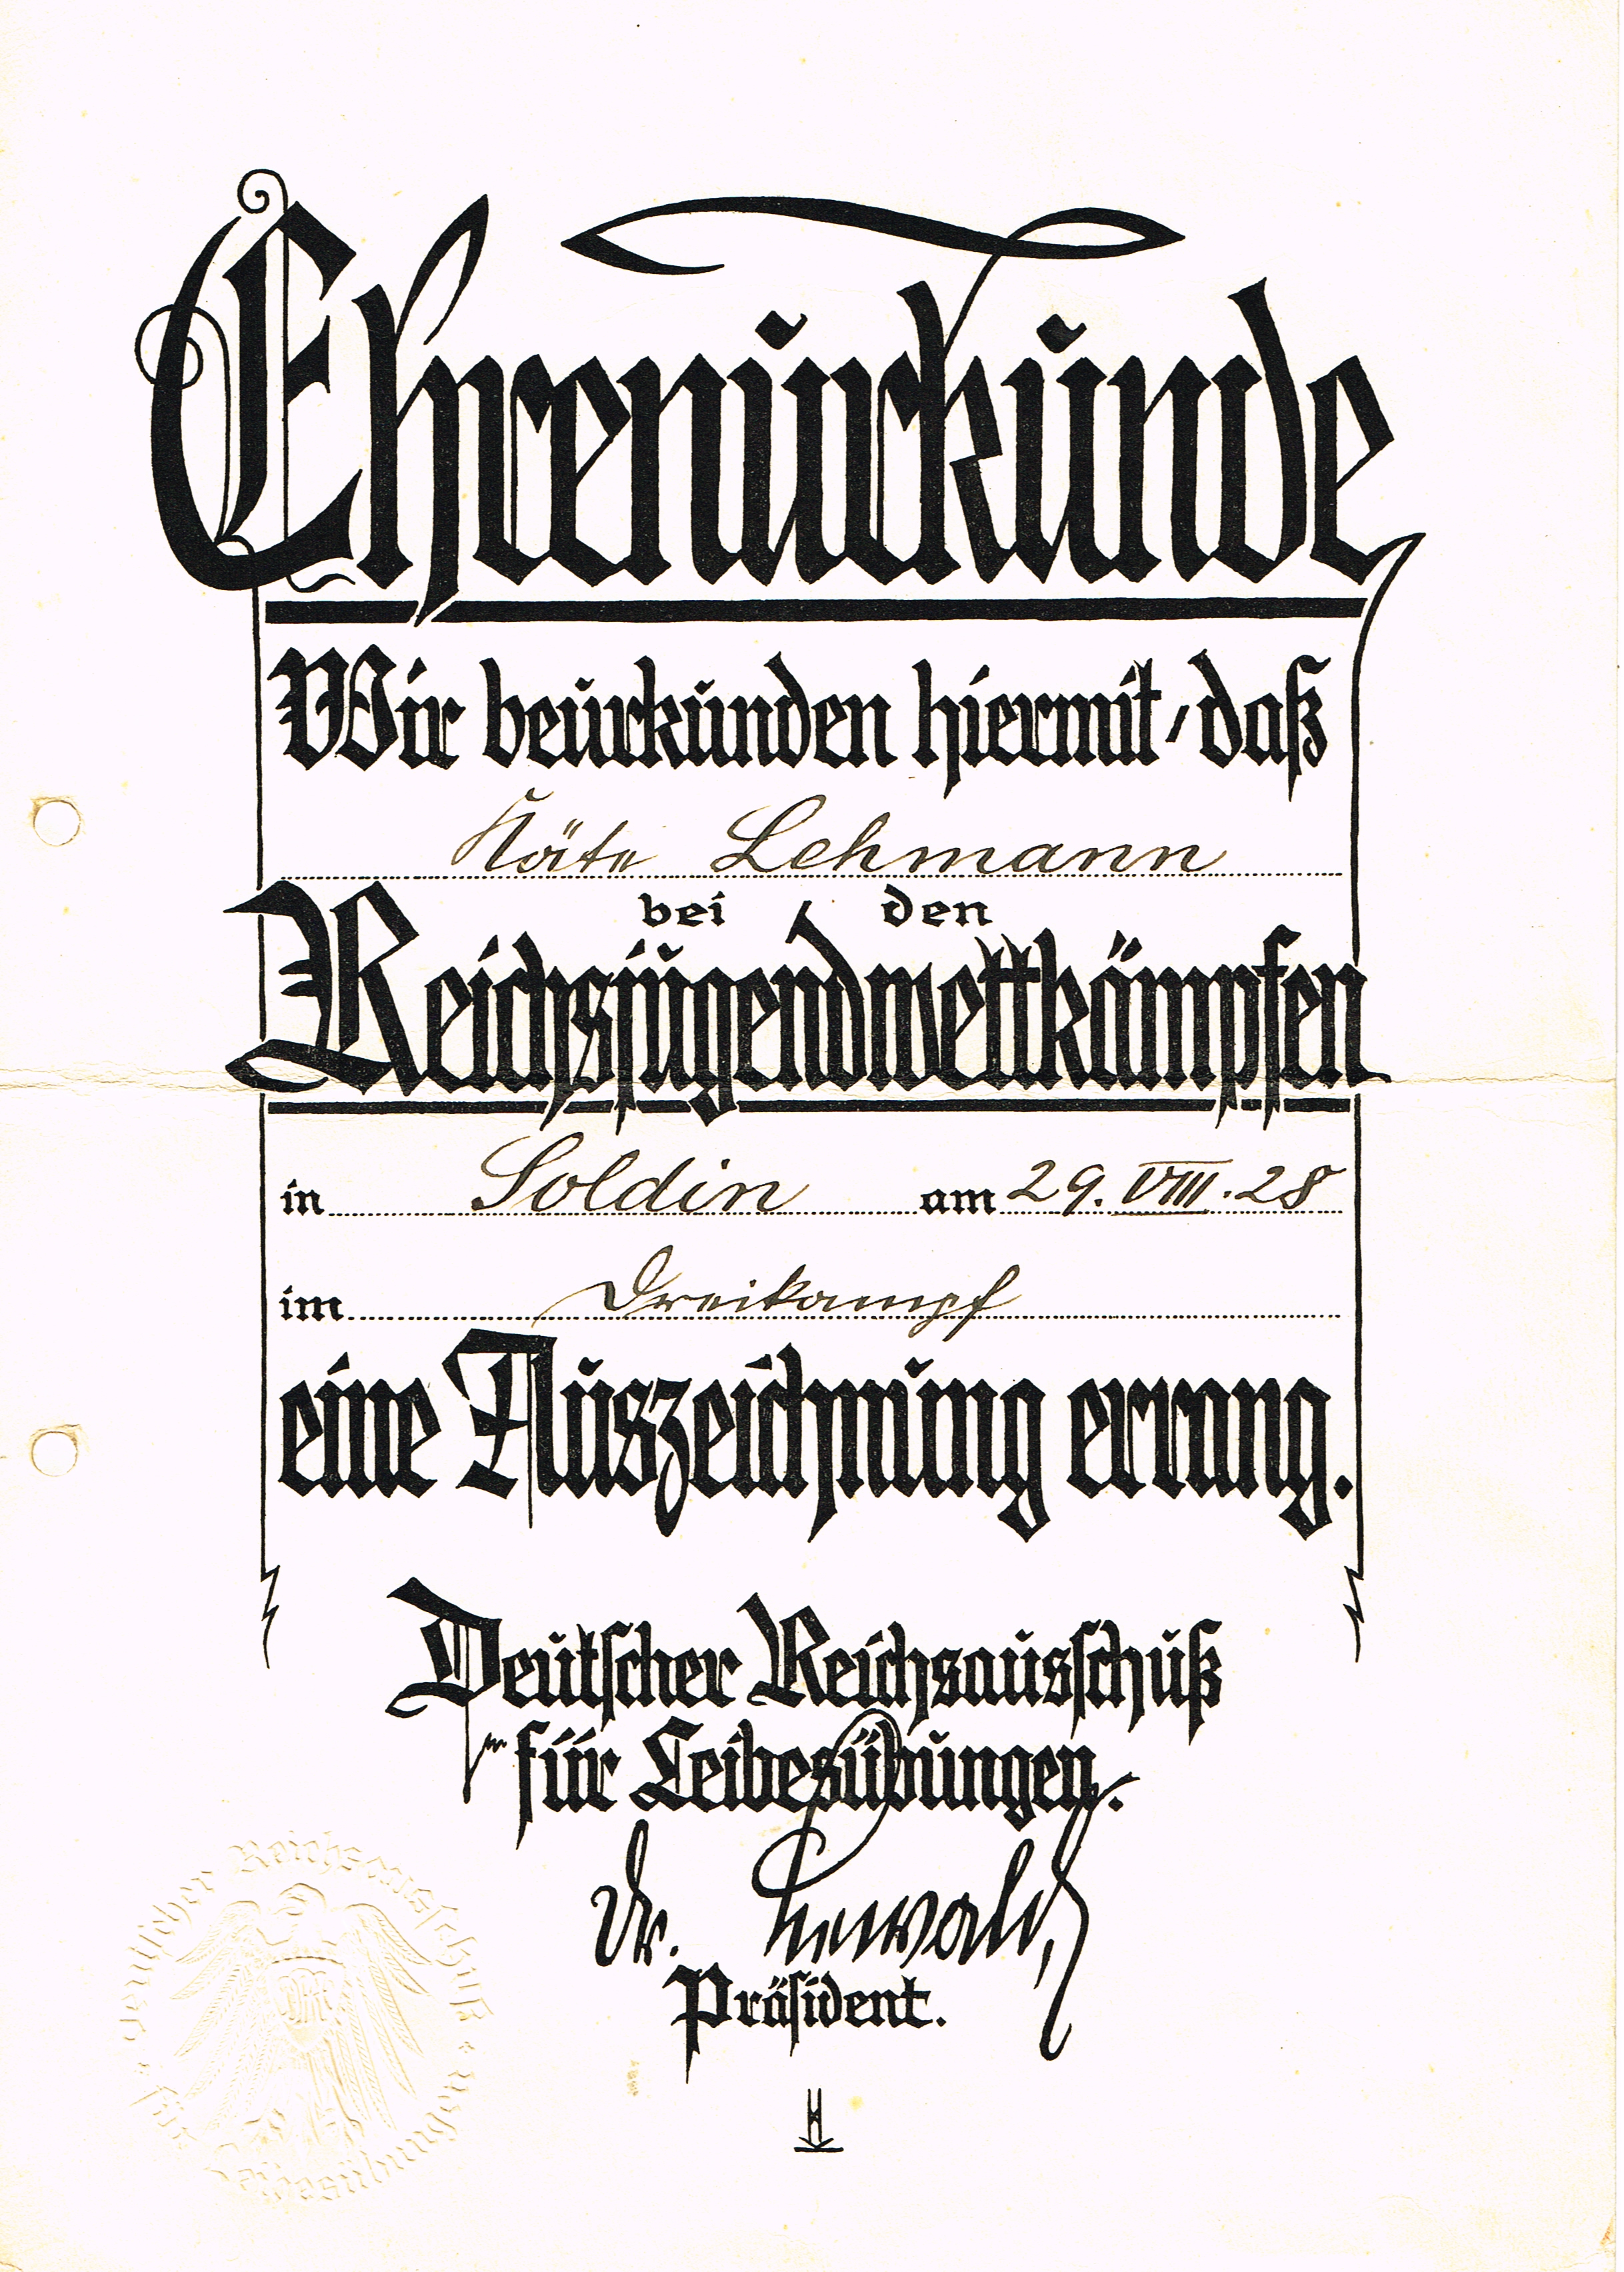 Ehrenurkunde
Wir beurkunden hiermit, daß
Käte Lehmann
bei den
Reichsjugendwettkämpfen
in Soldin am 29. VIII. 28
im Dreikampf
eine Auszeichnung errang.
Deutscher Reichsausschuß
für Leibesübungen.
Dr. Lewald,
Präsident.
Deutscher Reichsausschuß
für Leibesübungen